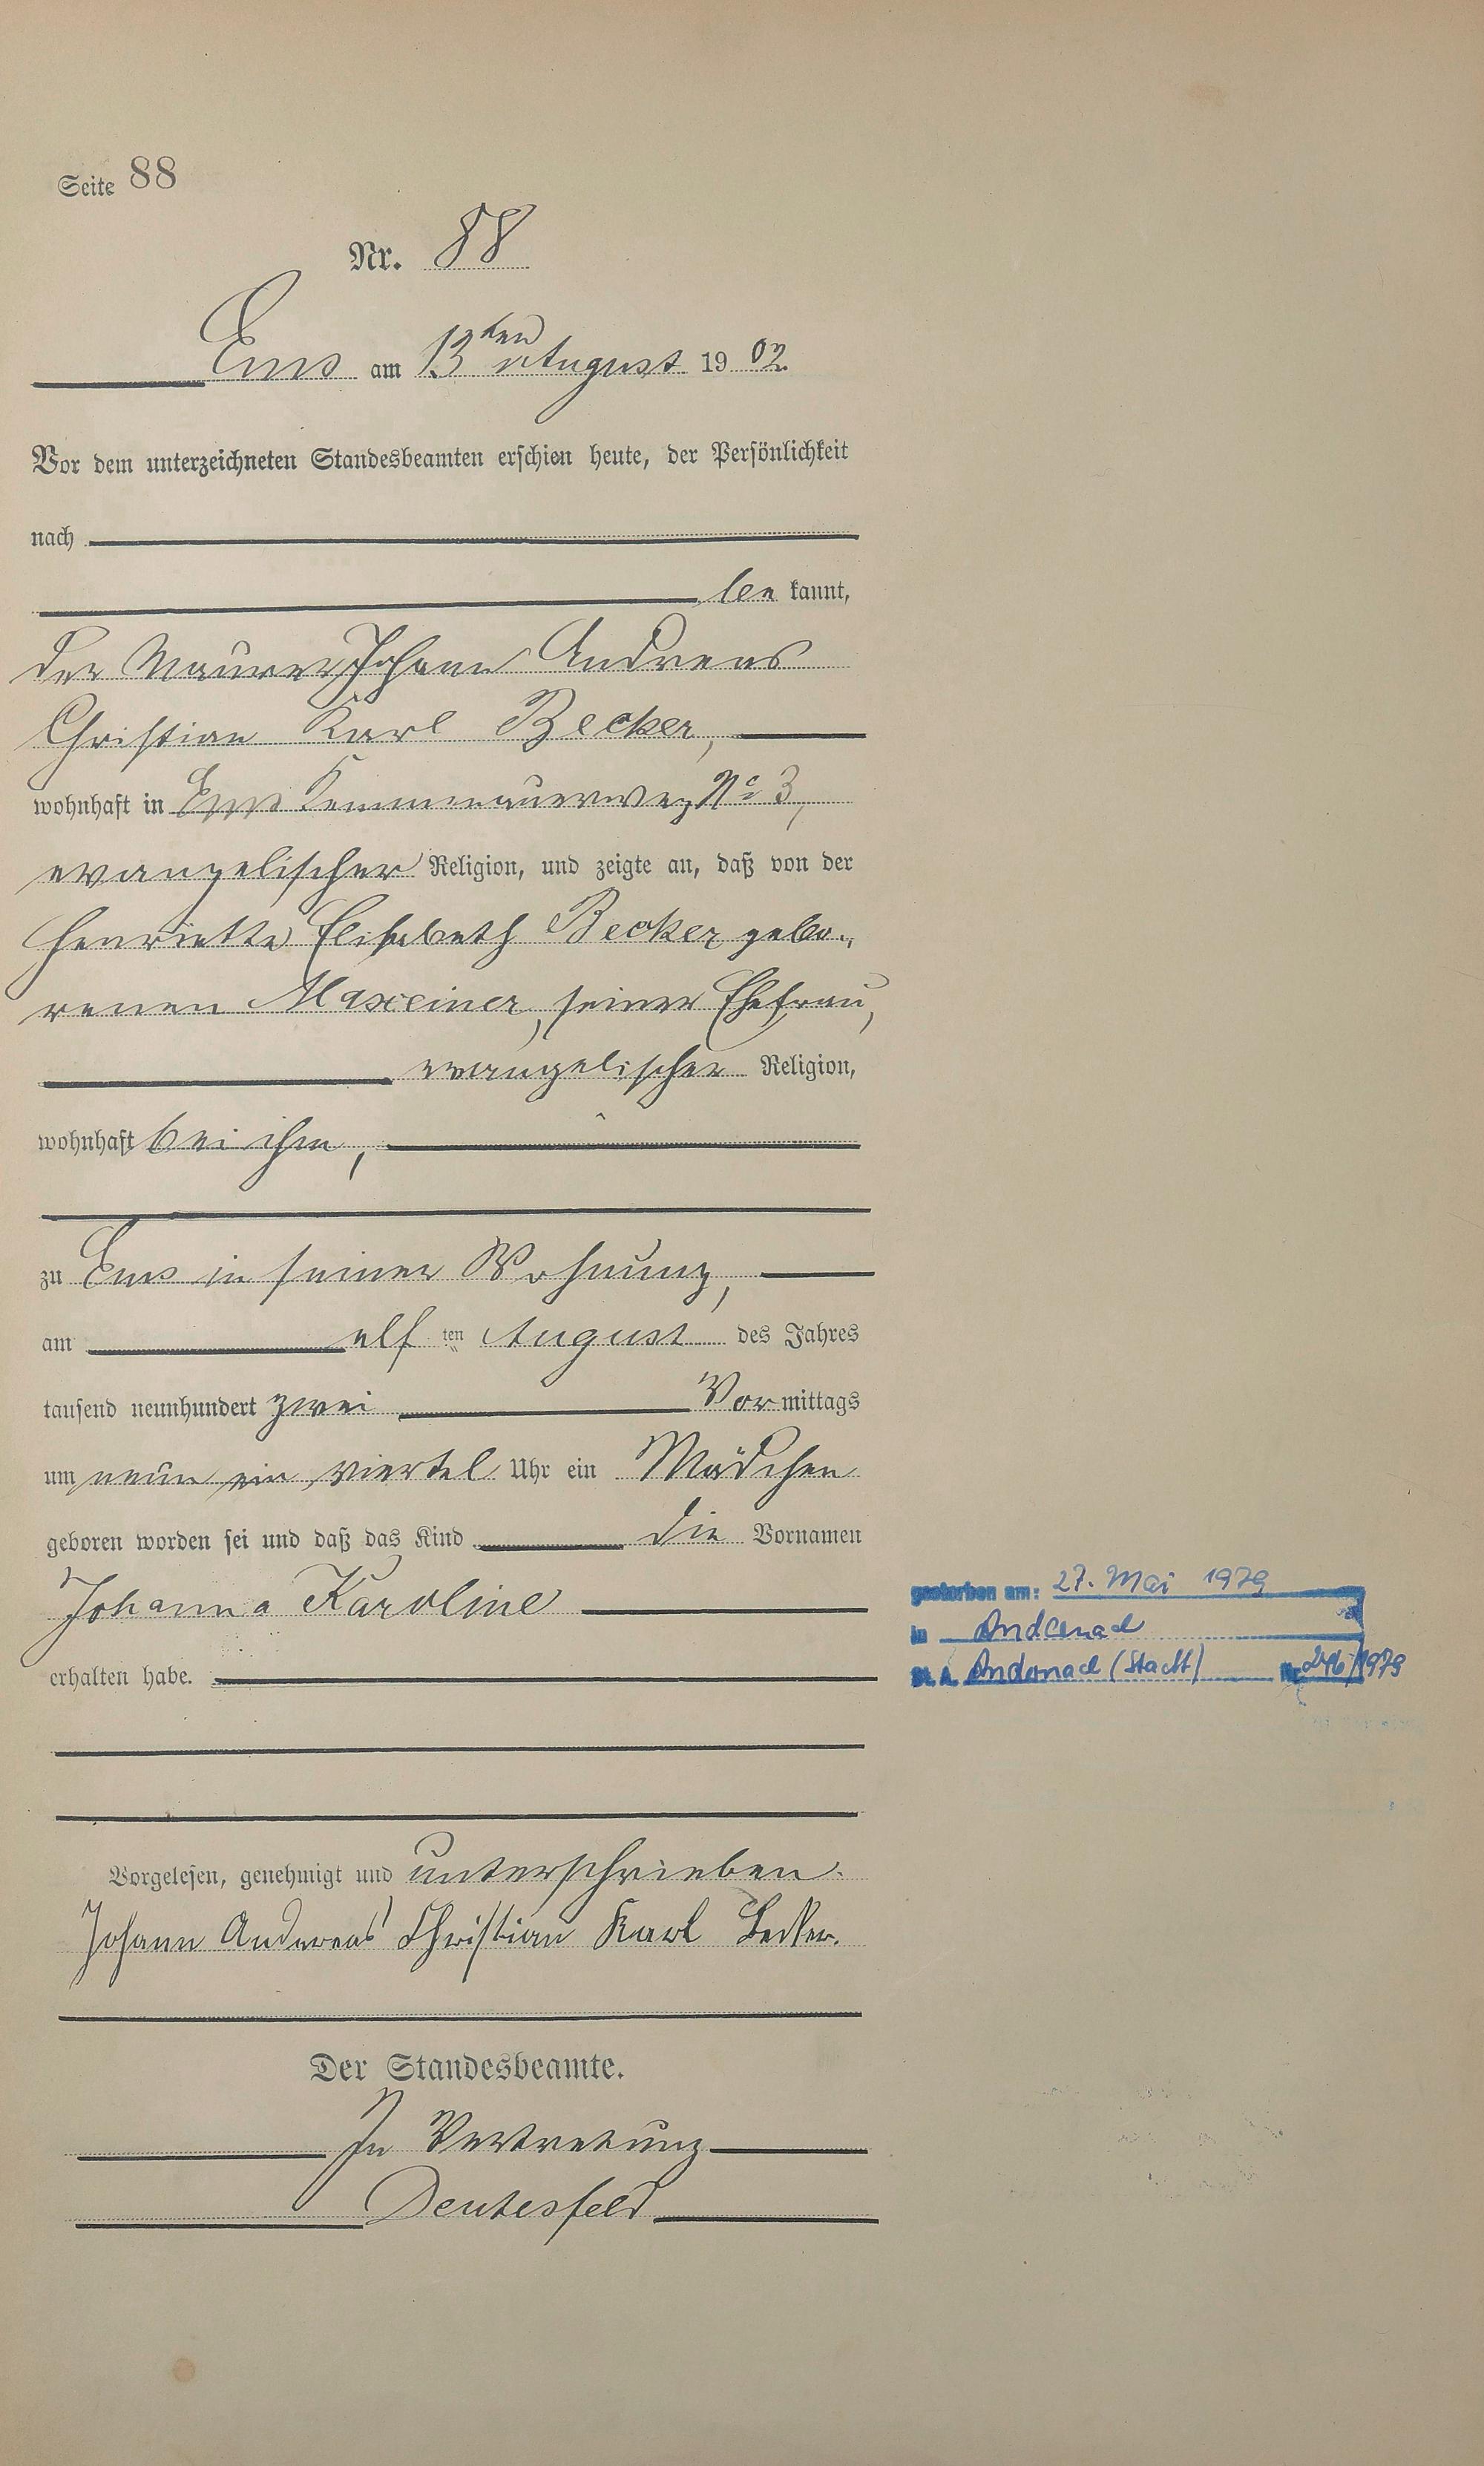 Seite 88
Nr. 88
Ems am 13ten August 1902
Vor dem unterzeichneten Standesbeamten erschien heute, der Persönlichkeit
nach
be kannt,
der Maurer Johann Andreas
Christian Karl Becker,
wohnhaft in Ems Kemmenauerweg No 3,
evangelischer Religion, und zeigte an, daß von der
Henriette Elisabeth Becker gebo-
renen Maxeiner, seiner Ehefrau,
evangelischer Religion,
wohnhaft bei ihm,
zu Ems in seiner Wohnung,
am elf ten August des Jahres
tausend neunhundert zwei Vormittags
um neun ein viertel Uhr ein Mädchen
geboren worden sei und daß das Kind die Vornamen
Johanna Karoline
erhalten habe.
gestorben am: 27. Mai 1979
in Andernach
St. A. Andernach (Stadt) Nr. 246/1979
Vorgelesen, genehmigt und unterschrieben.
Johann Andreas Christian Karl Becker.
Der Standesbeamte.
In Vertretung
Deutesfeld